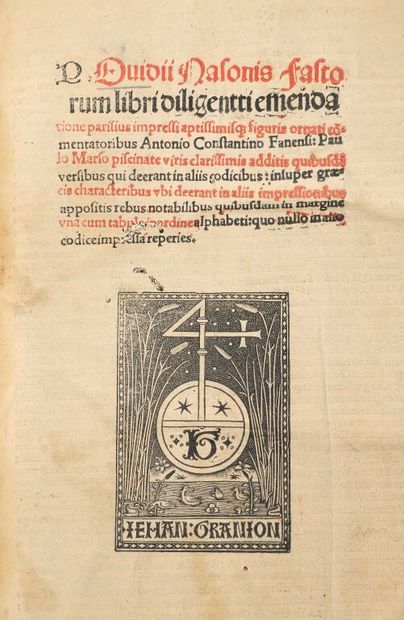 P. Ouidii Nasonis Fasto
rum libri diligentti emenda
tione parisius impressi aptissimisq; figuris ornati cõ-
mentatoribus Antonio Constantino Fanensi: Pau
lo Marso piscinate viris clarissimis additis quibusdã
versibus qui deerant in aliis codicibus: insuper græ-
cis characteribus vbi deerant in aliis impressionibus
appositis rebus notabilibus quibusdam in margine
vna cum tabula ordine alphabeti: quo nullo in alio
codice impressa reperies.
IEHAN: GRANION